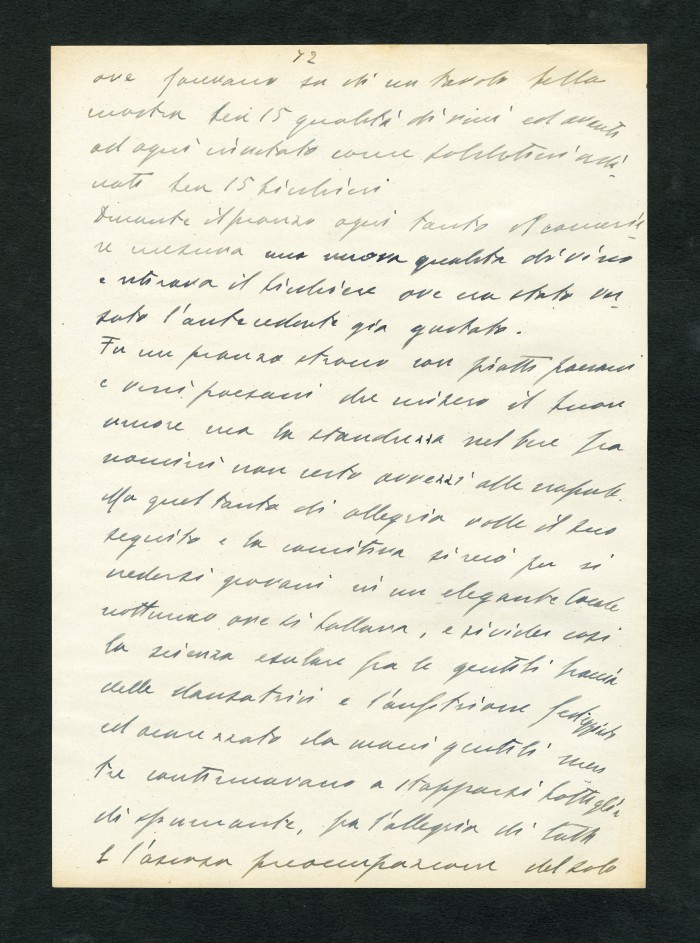 42
ove facevano su di un tavolo bella
mostra ben 15 qualità di vini ed avanti
ad ogni invitato come soldatini alli-
neati ben 15 bicchieri
Durante il pranzo ogni tanto il camerie-
re mesceva una nuova qualità di vino
e ritirava il bicchiere ove era stato ver-
sato l'antecedente già gustato.
Fu un pranzo strano con piatti paesani
e vini paesani che misero il buon
umore ma la stanchezza nel bere fra
uomini non certo avvezzi alle
Ma quel tanto di allegria volle il suo
seguito e la comitiva si recò per ri
vedersi giovani in un elegante locale
notturno ove si ballava, e si vide così
la scienza esulare fra le gentili braccia
delle danzatrici e l'anfitrione festeggiato
ed accarezzato da mani gentili men
tre continuavano a stapparsi bottiglie
di spumante, fra l'allegria di tutti
E l'ascosa preoccupazione del solo